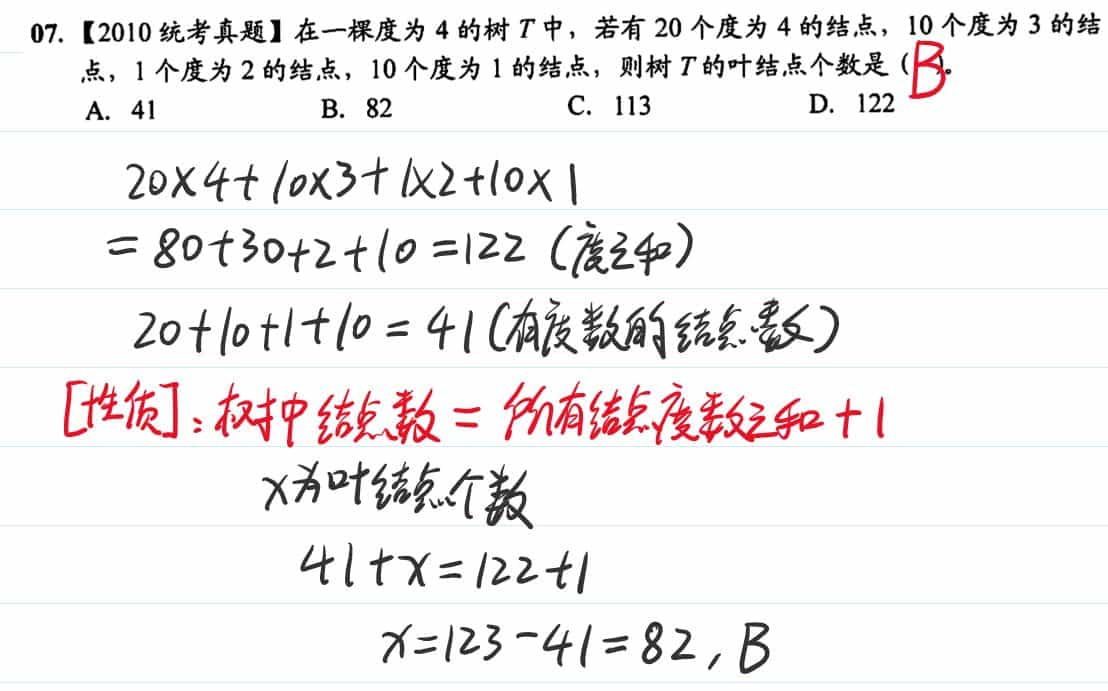 07. 【2010 统考真题】在一棵度为 4 的树 T 中，若有 20 个度为 4 的结点，10 个度为 3 的结
点，1 个度为 2 的结点，10 个度为 1 的结点，则树 T 的叶结点个数是（B）。
A. 41 B. 82 C. 113 D. 122
20×4+10×3+1×2+10×1
=80+30+2+10=122（度之和）
20+10+1+10=41（有度数的结点数）
[性质]：树中结点数=所有结点度数之和+1
x为叶结点个数
41+x=122+1
x=123-41=82，B